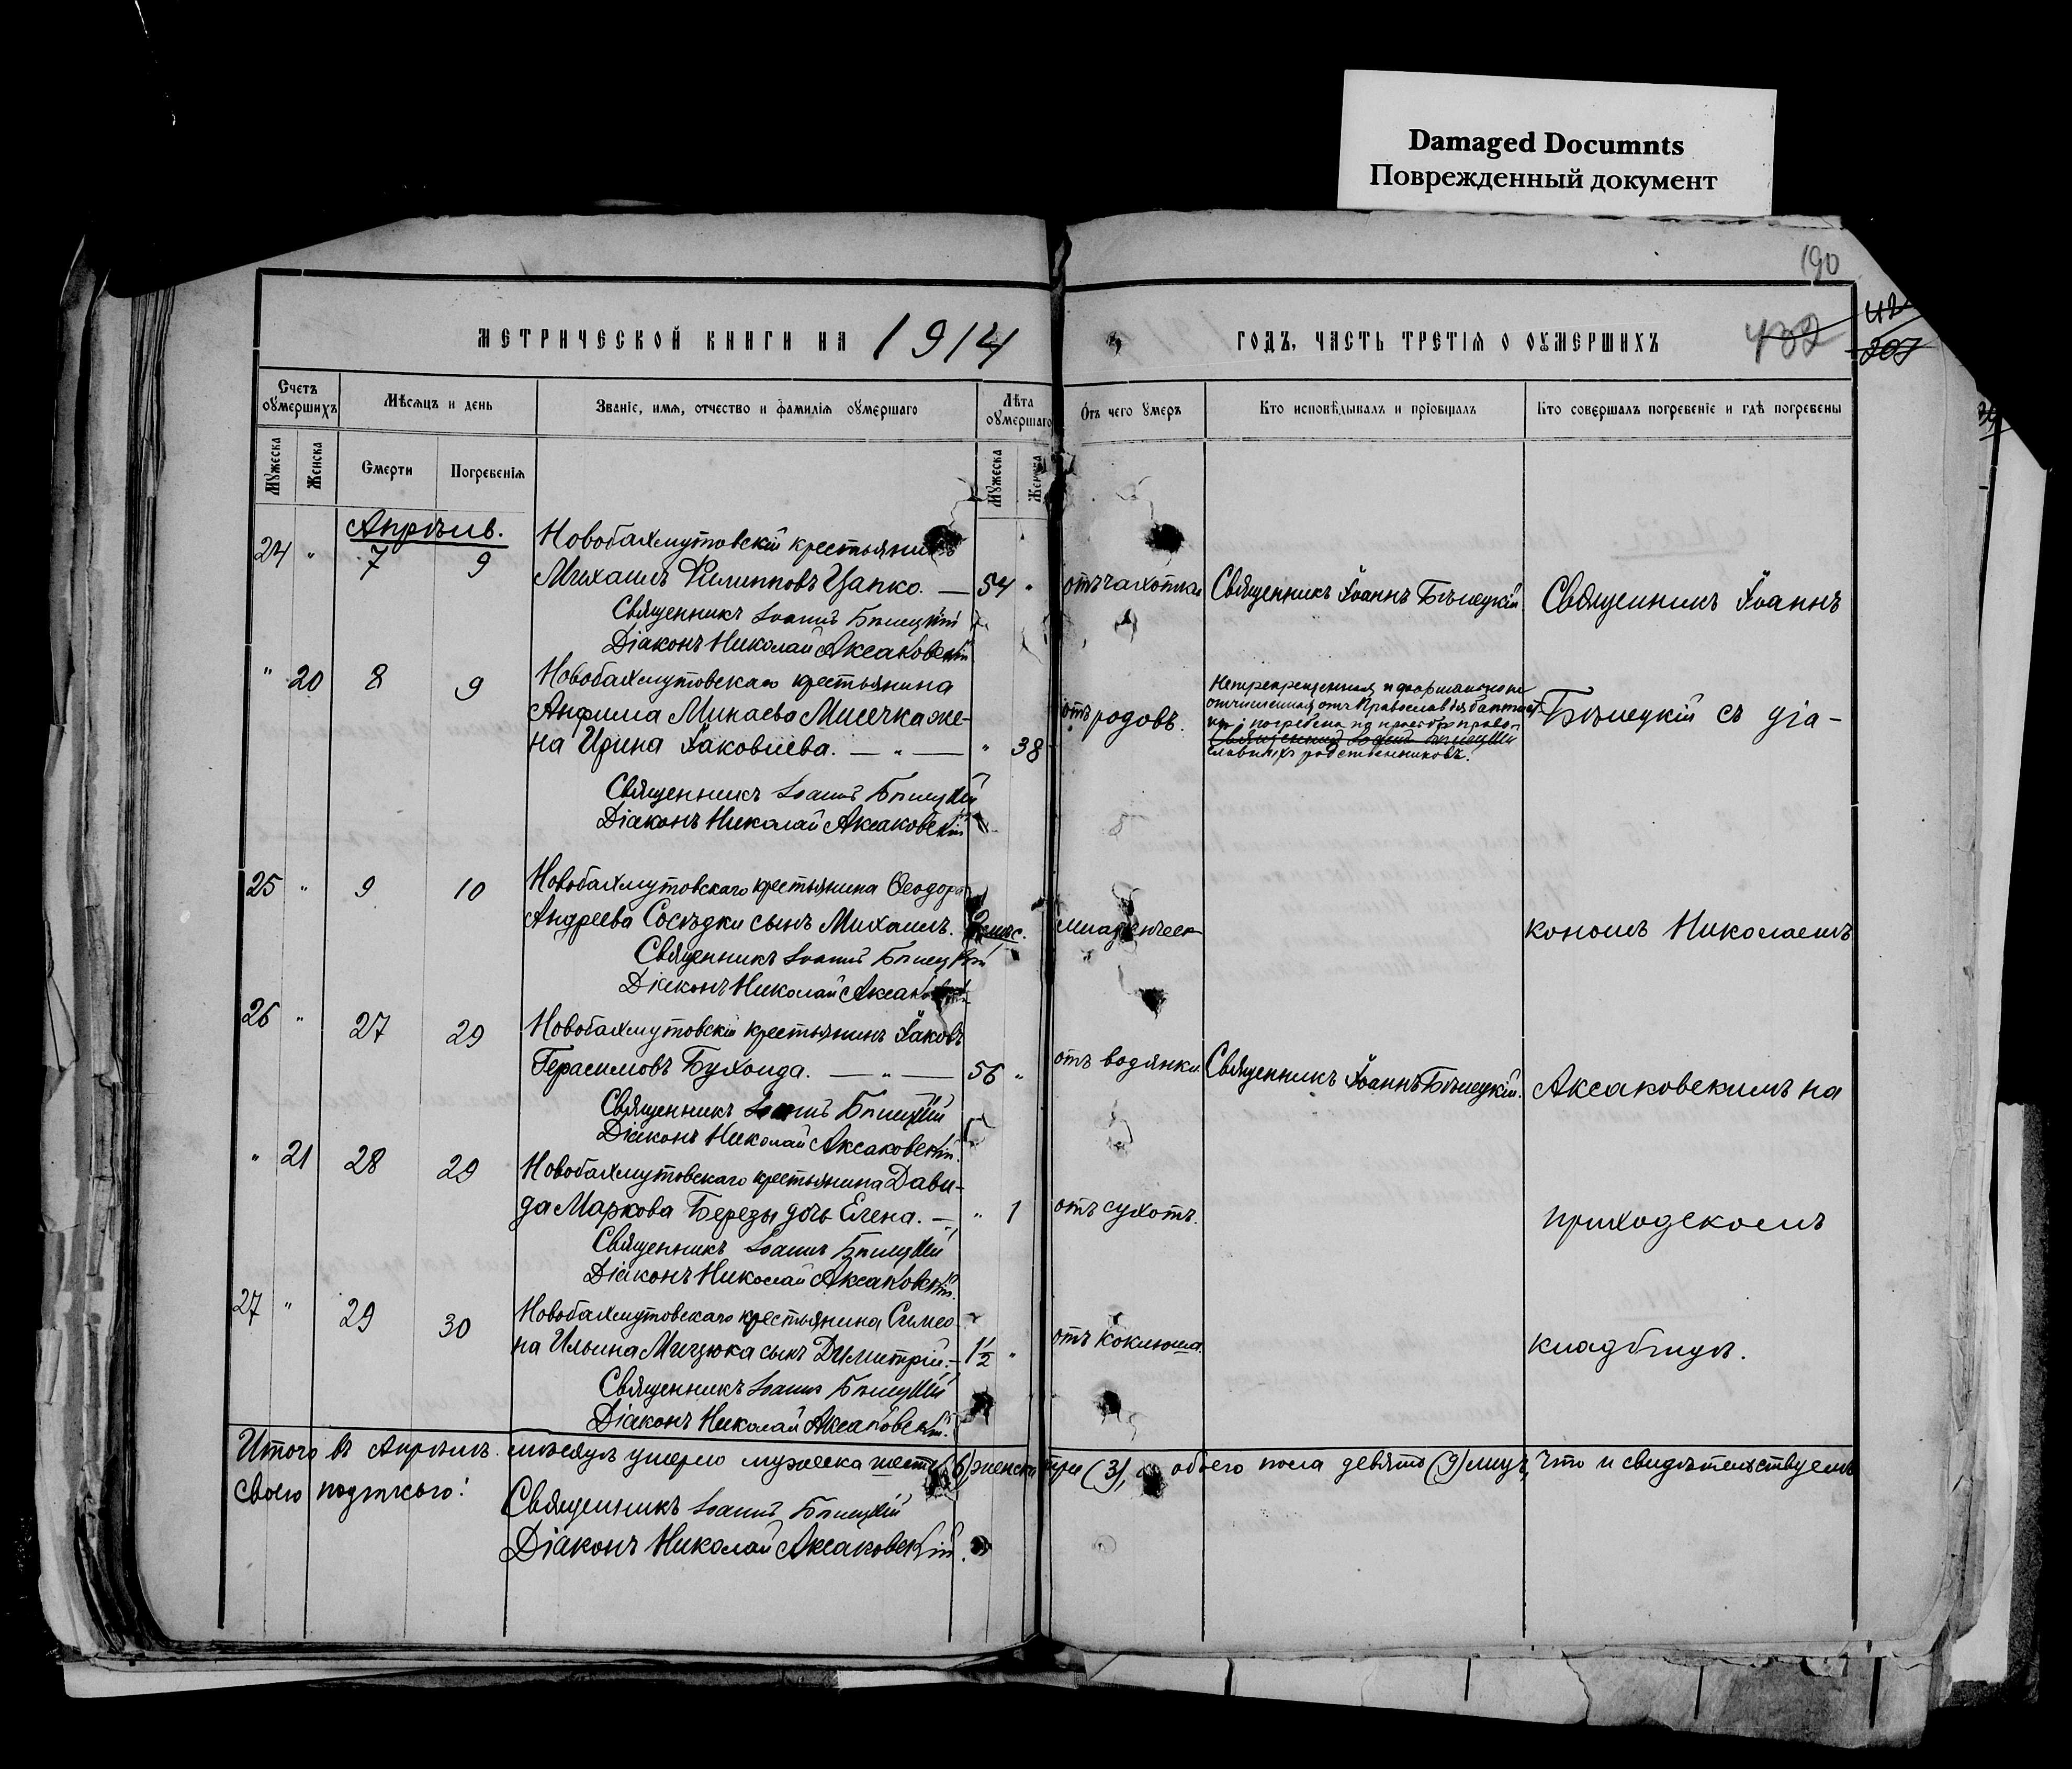 Damaged Documnts
Поврежденный документ
190
МЕТРИЧЕСКОЙ КНИГИ НА 1914 ГОДЪ, ЧАСТЬ ТРЕТІЯ О ОУМЕРШИХЪ
432
207
Счетъ оумершихъ
Мѣсяцъ и день
Званіе, имя, отчество и фамилія оумершаго
Лѣта оумершаго
Отъ чего умеръ
Кто исповѣдывалъ и пріобщалъ
Кто совершалъ погребеніе и гдѣ погребены
Мужеска
Женска
Смерти
Погребенія
Мужеска
Женска
Апрѣль.
24 " 7 9 Новобахмутовскій крестьянинъ
Михаилъ Филипповъ Цапко. — 54 " отъ чахотки Священникъ Іоаннъ Бѣлецкій Священникъ Іоаннъ
Священникъ Іоаннъ Бѣлецкій
Діаконъ Николай Аксаковскій
" 20 8 9 Новобахмутовскаго крестьянина
Анфима Минаева Мисечка же-
на Ирина Іаковлева. — " — " 38 отъ родовъ. Бѣлецкій съ діа-
отъ Православія
и погребена по просьбѣ право-
Священникъ Іоаннъ Бѣлецкій
славныхъ родственниковъ.
Священникъ Іоаннъ Бѣлецкій
Діаконъ Николай Аксаковскій
25 " 9 10 Новобахмутовскаго крестьянина Ѳеодора
Андреева Сосѣдки сынъ Михаилъ. мѣс. кономъ Николаемъ
Священникъ Іоаннъ Бѣлецкій
Діаконъ Николай Аксаковскій
26 " 27 29 Новобахмутовскій крестьянинъ Іаковъ
Герасимовъ Бухонда. — " — 56 " отъ водянки Священникъ Іоаннъ Бѣлецкій. Аксаковскимъ на
Священникъ Іоаннъ Бѣлецкій
Діаконъ Николай Аксаковскій.
" 21 28 29 Новобахмутовскаго крестьянина Дави-
да Маркова Березы дочь Елена. — " 1 отъ сухотъ. приходскомъ
Священникъ Іоаннъ Бѣлецкій
Діаконъ Николай Аксаковскій.
27 " 29 30 Новобахмутовскаго крестьянина Симео-
на Ильина Мицюка сынъ Димитрій. — 1½ " отъ коклюша. кладбищѣ.
Священникъ Іоаннъ Бѣлецкій
Діаконъ Николай Аксаковскій.
Итого въ Апрѣлѣ мѣсяцѣ умерло мужеска шесть (6) женска три (3), а обоего пола девять (9) лицъ, что и свидѣтельствуемъ
своею подписью:
Священникъ Іоаннъ Бѣлецкій
Діаконъ Николай Аксаковскій.